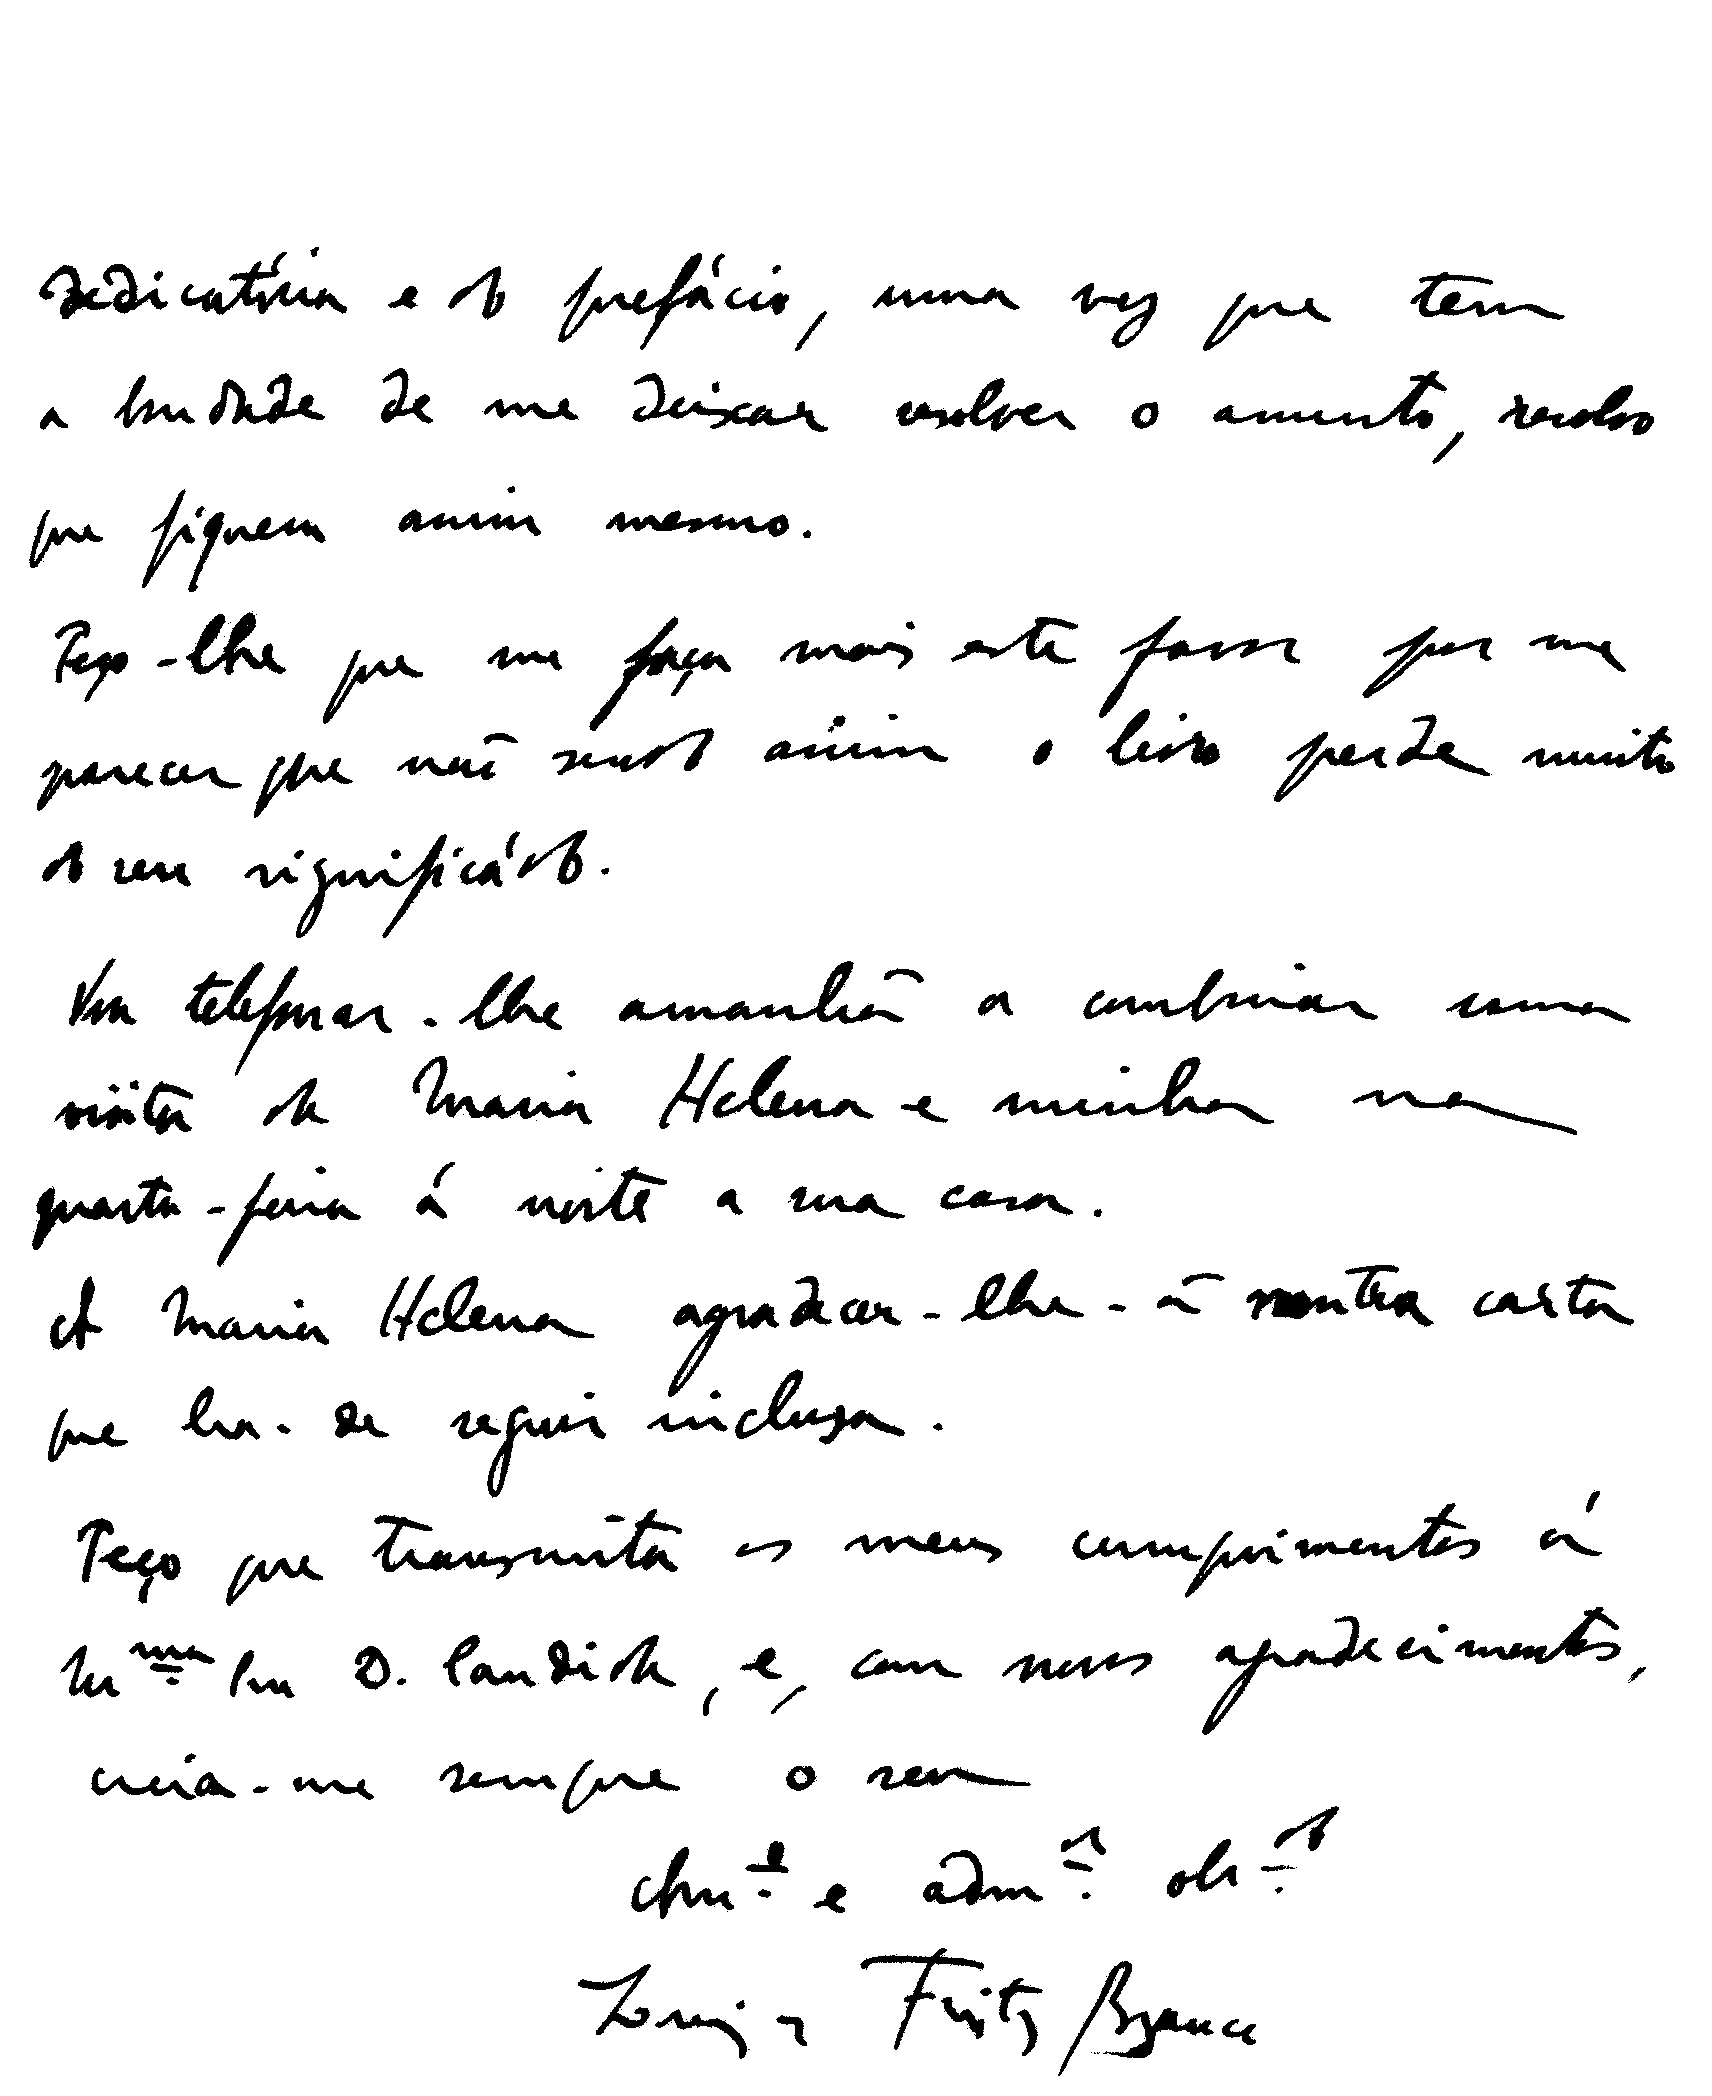 dedicatória e do prefácio, uma vez que tem
a bondade de me deixar resolver o assunto, resolvo
que fiquem assim mesmo.
Peço-lhe que me faça mais este favor por me
parecer que não sendo assim o livro perde muito
do seu significádo.
Vou telefonar-lhe amanhã a combinar uma
visita da Maria Helena e minha na
quarta-feira á noite a sua casa.
A Maria Helena agradecer-lhe-á noutra carta
que ha-de seguir inclusa.
Peço que transmita os meus cumprimentos á
Sra D. Candida, e, com novos agradecimentos,
creia-me sempre o seu
e admor obdo
Luiz de Freitas Branco